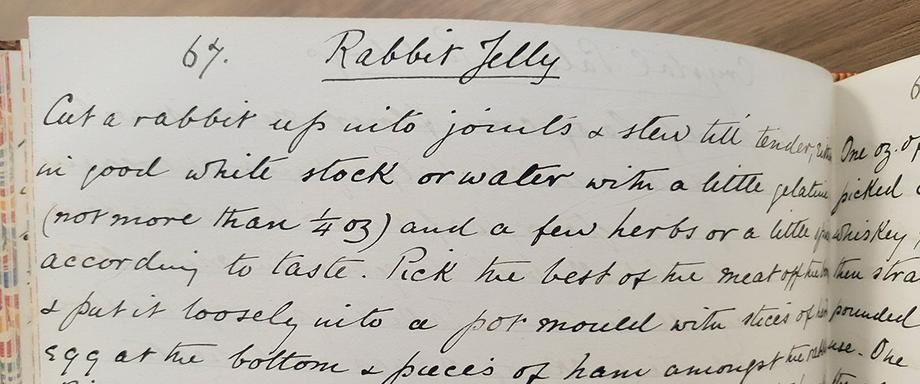 67. Rabbit Jelly
Cut a rabbit up into joints & stew till tender,
in good white stock or water with a little gelatine
(not more than ¼ oz) and a few herbs or a little
according to taste. Pick the best of the meat off the
& put it loosely into a pot mould with slices of
egg at the bottom & pieces of ham amongst the
One oz. of
picked
whiskey
then
pounded
One